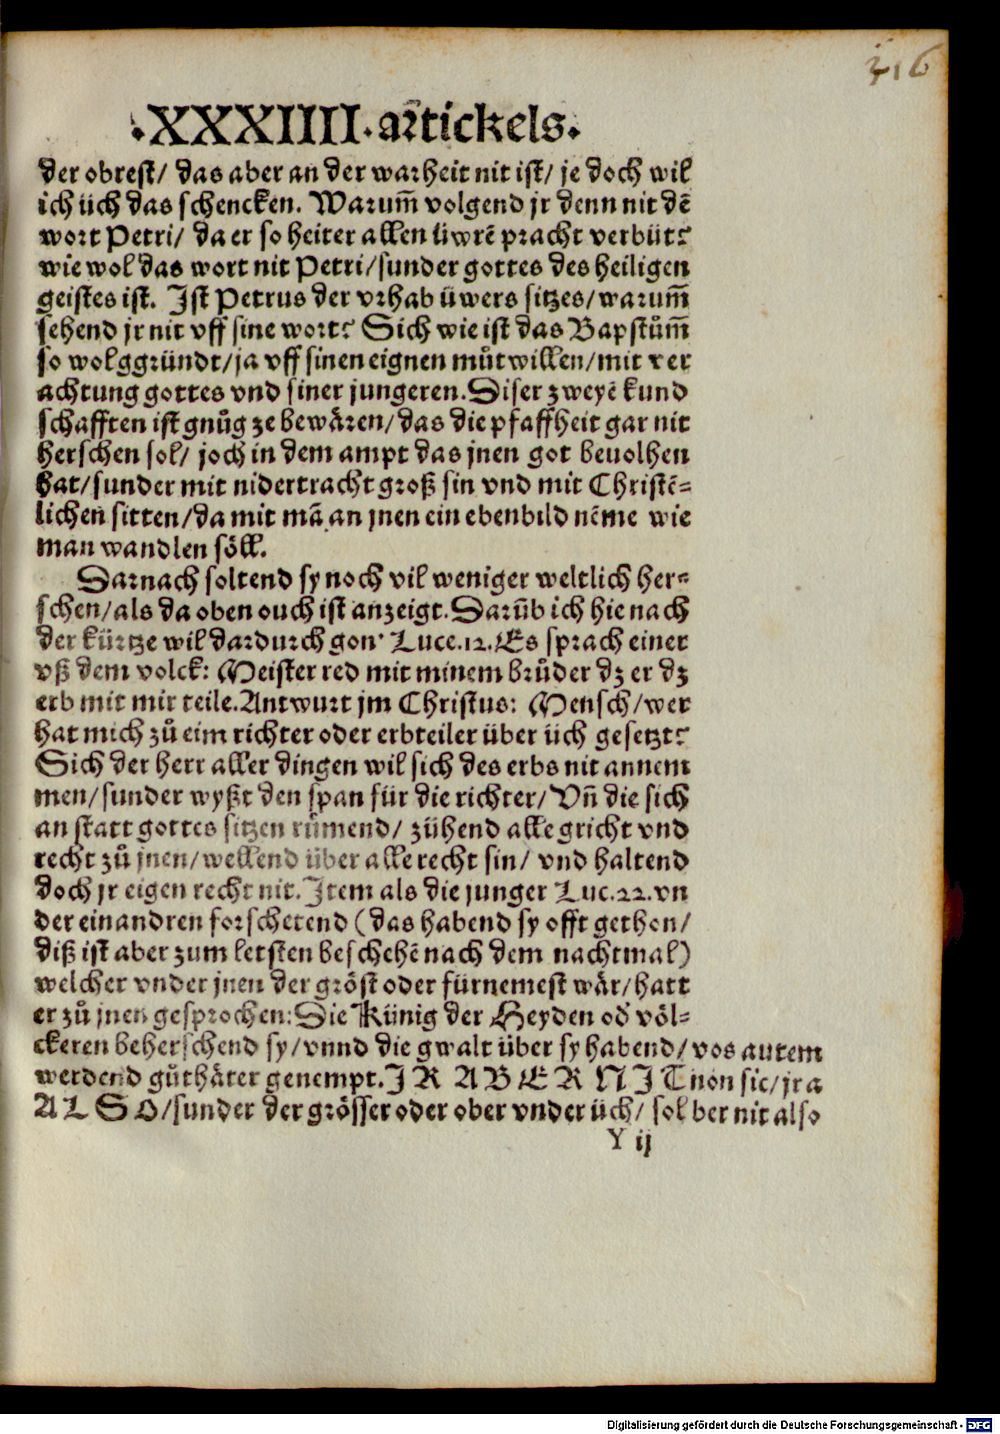 316
.XXXIIII. artickels.
der obrest/ das aber an der warheit nit ist/ je doch wil
ich üch das schencken. Warum̄ volgend jr denn nit dē
wort Petri/ da er so heiter allen üwrē pracht verbüt?
wie wol das wort nit Petri/sunder gottes des heiligen
geistes ist. Ist Petrus der vrhab üwers sitzes/warum̄
sehend jr nit vff sine wort? Sich wie ist das Bapstům̄
so wolggründt/ja vff sinen eignen můtwillen/mit ver
achtung gottes vnd siner jungeren.Diser zweyē kund
schafften ist gnůg ze bewären/das die pfaffheit gar nit
herschen sol/ joch in dem ampt das jnen got beuolhen
hat/sunder mit nidertracht groß sin vnd mit Christē-
lichen sitten/da mit mā an jnen ein ebenbild nēme wie
man wandlen söll.
Darnach soltend sy noch vil weniger weltlich her-
schen/als da oben ouch ist anzeigt.Darūb ich hie nach
der kürtze wil dardurch gon· Luce.12.Es sprach einer
vß dem volck: Meister red mit minem brůder dz er dz
erb mit mir teile.Antwurt jm Christus: Mensch/wer
hat mich zů eim richter oder erbteiler über üch gesetzt?
Sich der herr aller dingen wil sich des erbs nit annem
men/sunder wyßt den span für die richter/Vn̄ die sich
an statt gottes sitzen růmend/ zühend alle gricht vnd
recht zů jnen/wellend über alle recht sin/ vnd haltend
doch jr eigen recht nit.Item als die junger Luc.22.vn
der einandren forschetend (das habend sy offt gethon/
diß ist aber zum letsten beschehē nach dem nachtmal)
welcher vnder jnen der gröst oder fürnemest wär/hatt
er zů jnen gesprochen:Die Künig der Heyden od̓ völ-
ckeren beherschend sy/vnnd die gwalt über sy habend/vos autem
werdend gůthäter genempt.IR ABER NIT non sic/jr a
ALSO/sunder der grösser oder ober vnder üch/ sol ber nit also
Y ij
Digitalisierung gefördert durch die Deutsche Forschungsgemeinschaft - DFG